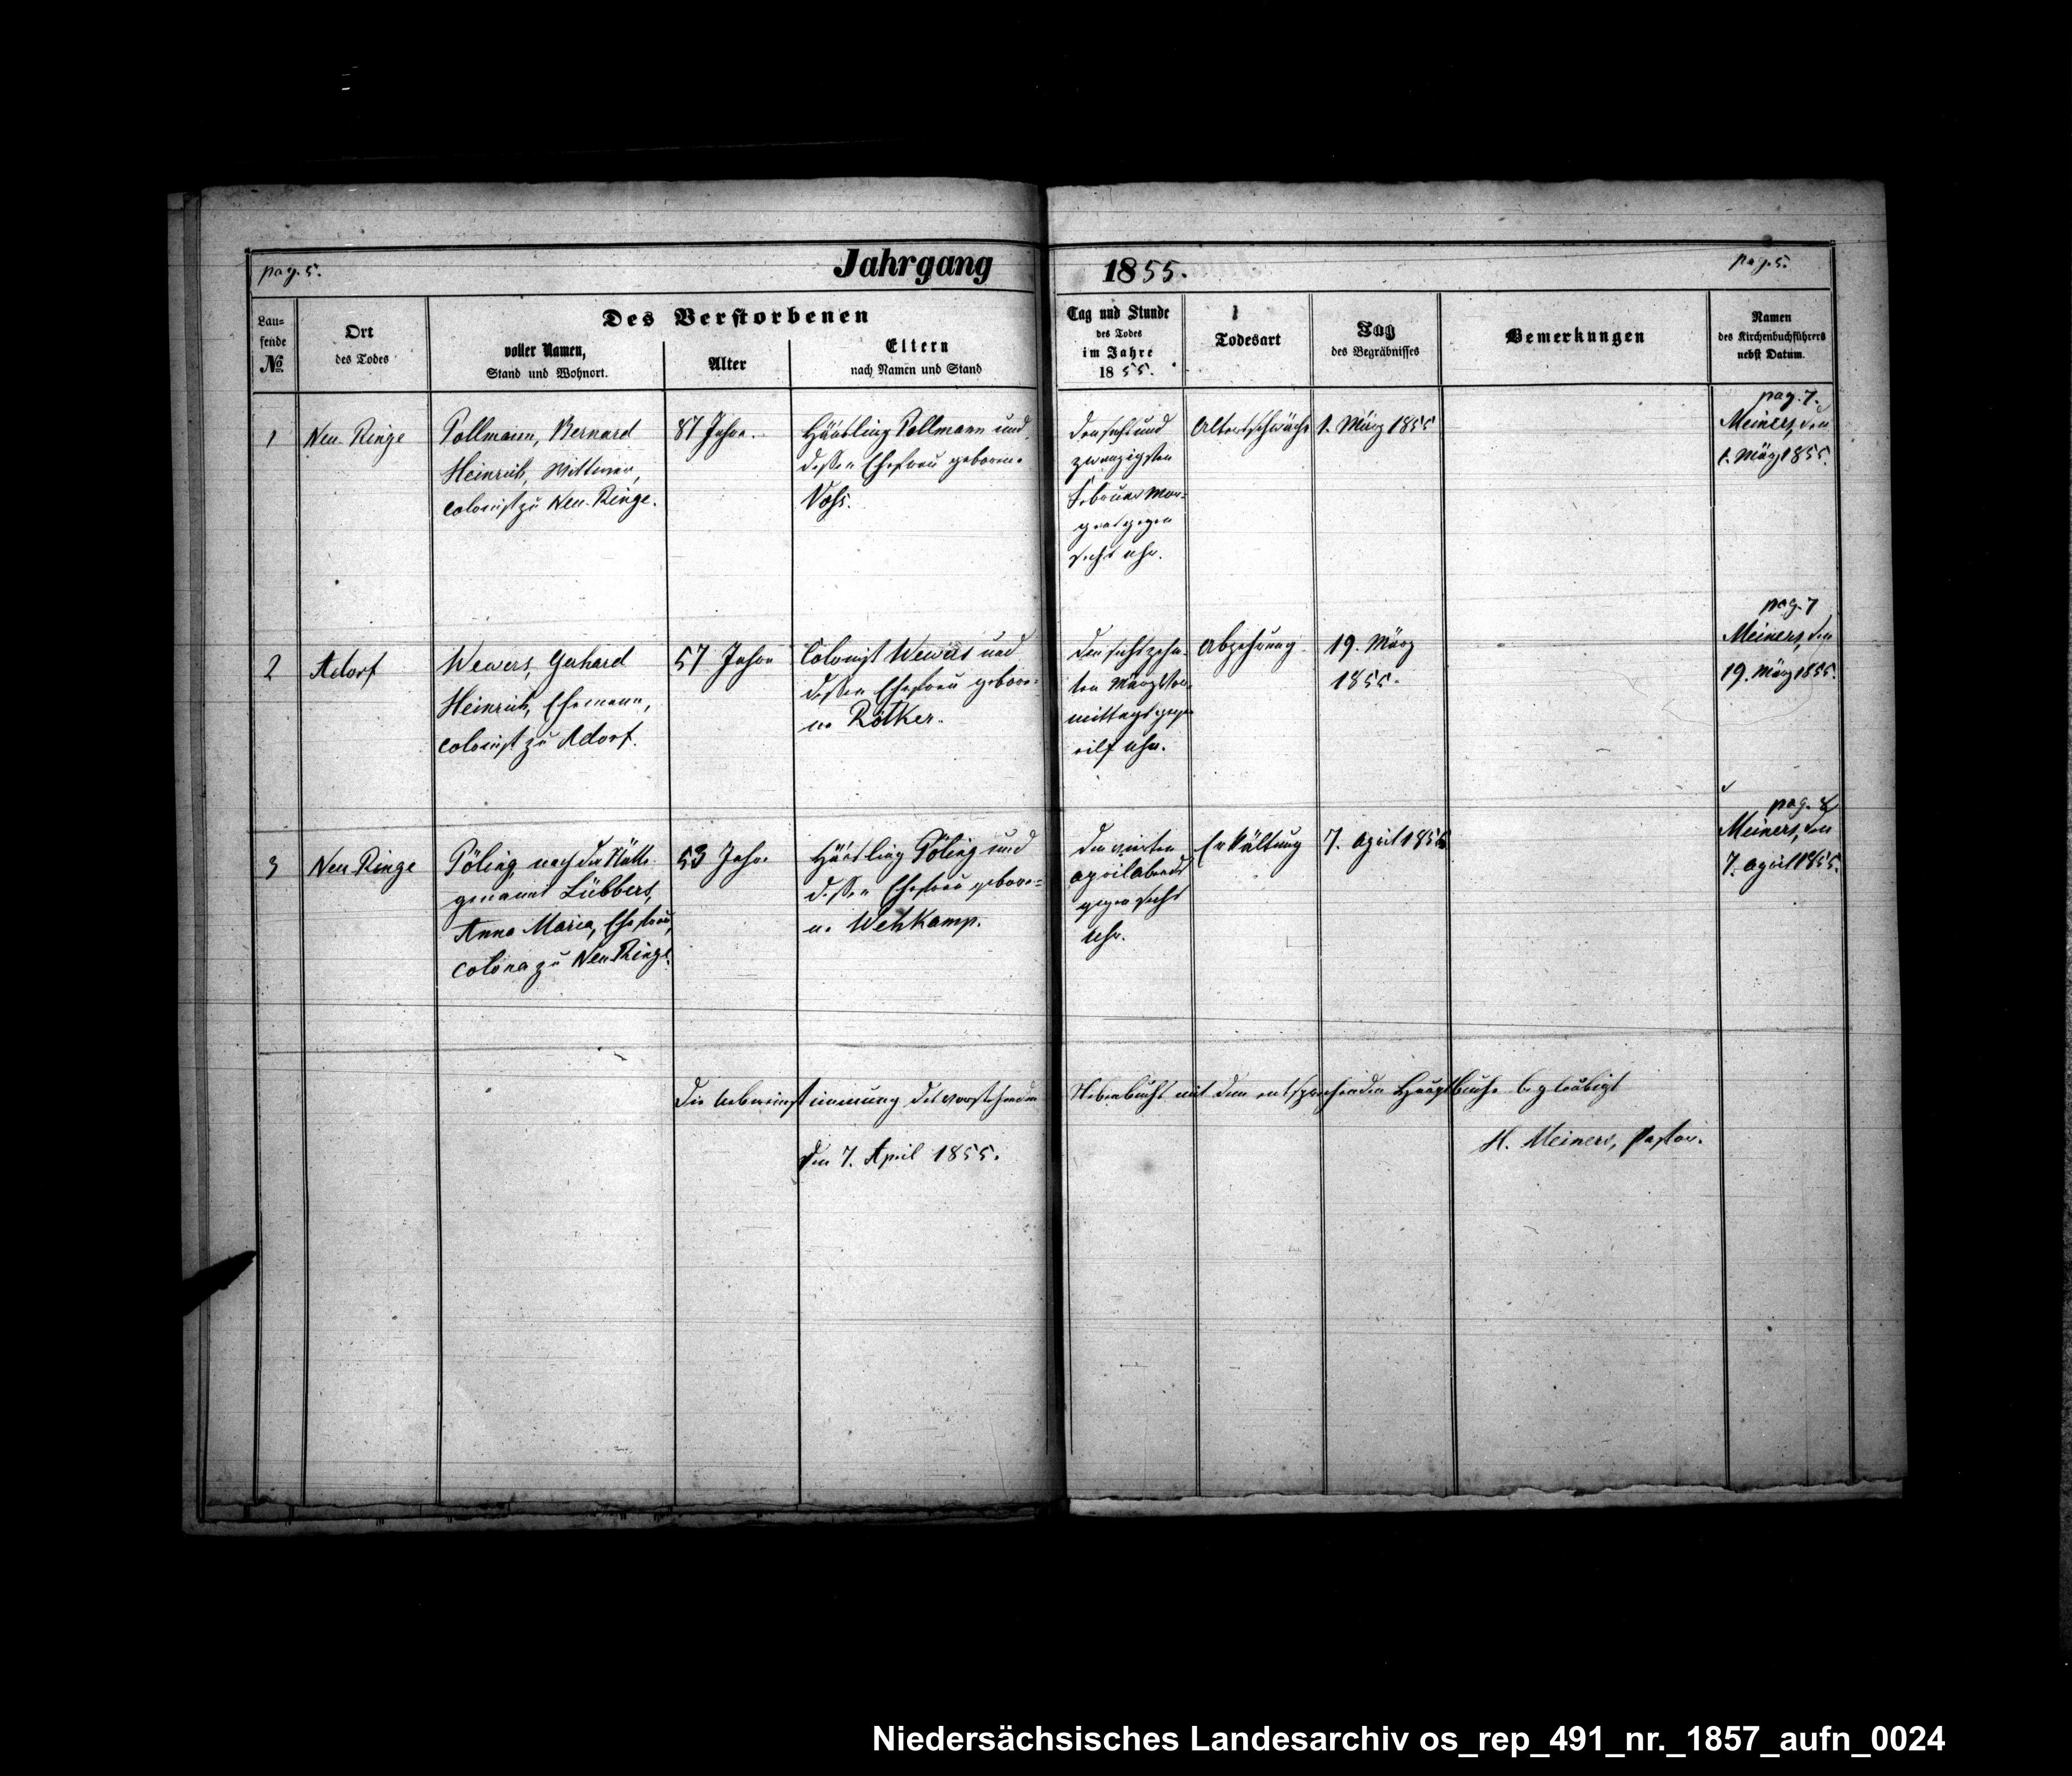 pag. 5.
Jahrgang 1855.
pag. 5.
Lau=
fende
No.
Ort
des Todes
Des Verstorbenen
voller Namen,
Stand und Wohnort.
Alter
Eltern
nach Namen und Stand
Tag und Stunde
des Todes
im Jahre
1855.
Todesart
Tag
des Begräbnisses
Bemerkungen
Namen
des Kirchenbuchführers
nebst Datum.
1
Neu-Ringe
Pollmann, Bernard
Heinrich, Wittwer,
Colonist zu Neu-Ringe.
87 Jahre.
Häusling Pollmann und
dessen Ehefrau geborene
Voss.
Den sechs und
zwanzigsten
Februar Mor=
gens gegen
sechs Uhr.
Altersschwäche
1. März 1855
pag. 7.
Meiners, den
1. März 1855.
2
Adorf
Wewers, Gerhard
Heinrich, Ehemann,
Colonist zu Adorf.
57 Jahre
Colonist Wewers und
dessen Ehefrau gebore=
ne Rötker.
Den sechszehn=
ten März Vor=
mittags gegen
eilf Uhr.
Abzehrung
19. März
1855.
pag. 7
Meiners, den
19. März 1855.
3
Neu Ringe
Pöling, nach der Stätte
genannt Lübbers,
Anna Maria, Ehefrau,
Colona zu Neu-Ringe.
53 Jahre
Häusling Pöling und
dessen Ehefrau gebore=
ne Wehkamp.
Den vierten
April Abends
gegen sechs
Uhr.
Erkältung
7. April 1855
pag. 8
Meiners, den
7. April 1855.
Die Uebereinstimmung des vorstehenden Nebenbuchs mit dem entsprechenden Hauptbuche beglaubigt
den 7. April 1855.
H. Meiners, Pastor.
Niedersächsisches Landesarchiv os_rep_491_nr._1857_aufn_0024